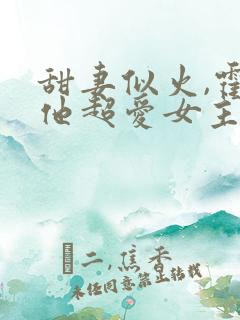 甜妻似火,霍
他超爱女主
二,焦香
未经同意禁止转载